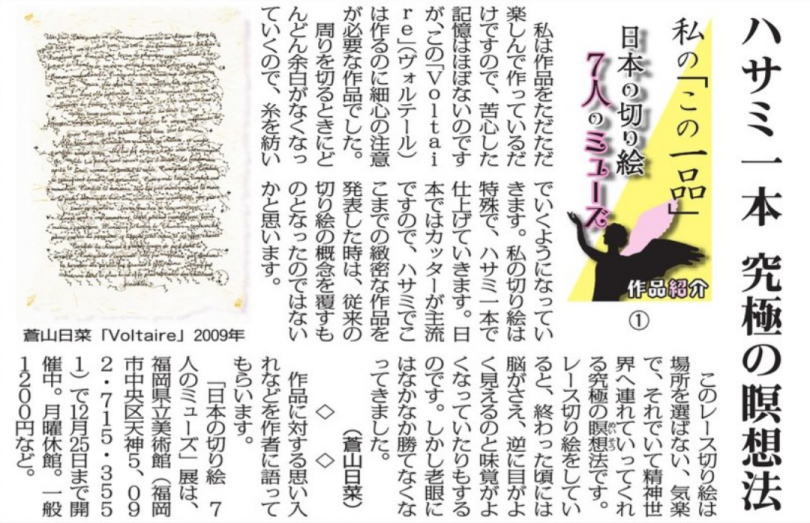 ハサミ一本 究極の瞑想法
私の「この一品」
日本の切り絵
7人のミューズ
作品紹介
①
私は作品をただただ
楽しんで作っているだ
けですので、苦心した
記憶はほぼないのです
が、この「Voltai
re」(ヴォルテール)
は作るのに細心の注意
が必要な作品でした。
周りを切るときにど
んどん余白がなくなっ
ていくので、糸を紡い
でいくようになってい
きます。私の切り絵は
特殊で、ハサミ一本で
仕上げていきます。日
本ではカッターが主流
ですので、ハサミでこ
こまでの緻密な作品を
発表した時は、従来の
切り絵の概念を覆すも
のとなったのではない
かと思います。
蒼山日菜「Voltaire」2009年
このレース切り絵は
場所を選ばない、気楽
で、それでいて精神世
界へ連れていってくれ
る究極の瞑想法です。
めいそう
レース切り絵をしてい
ると、終わった頃には
脳がさえ、逆に目がよ
く見えるのと味覚がよ
くなっていたりもする
のです。しかし老眼に
はなかなか勝てなくな
ってきました。
(蒼山日菜)
◇ ◇
作品に対する思い入
れなどを作者に語って
もらいます。
「日本の切り絵 7
人のミューズ」展は、
福岡県立美術館(福岡
市中央区天神5、09
2・715・355
1)で12月25日まで開
催中。月曜休館。一般
1200円など。